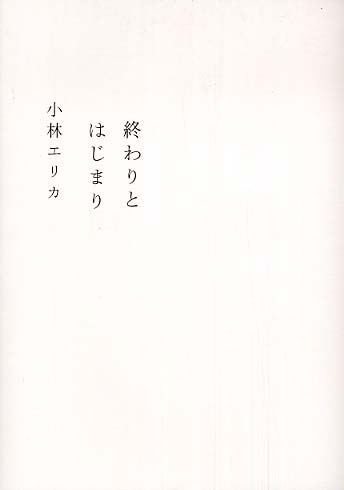 終わりと
はじまり
小林エリカ